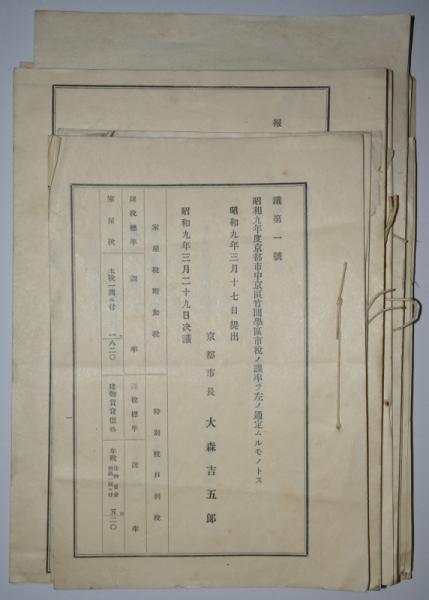 報
議第一號
昭和九年度京都市中京區竹間學區市稅ノ課率ヲ左ノ通定ムルモノトス
昭和九年三月十七日提出
京都市長 大森吉五郎
昭和九年三月二十九日決議
家屋稅附加稅
特別稅戶別稅
課稅標準
課率
課稅標準
課率
家屋稅
本稅一圓ニ付
一八二〇
建物賃貸價格
年稅
五二〇
一